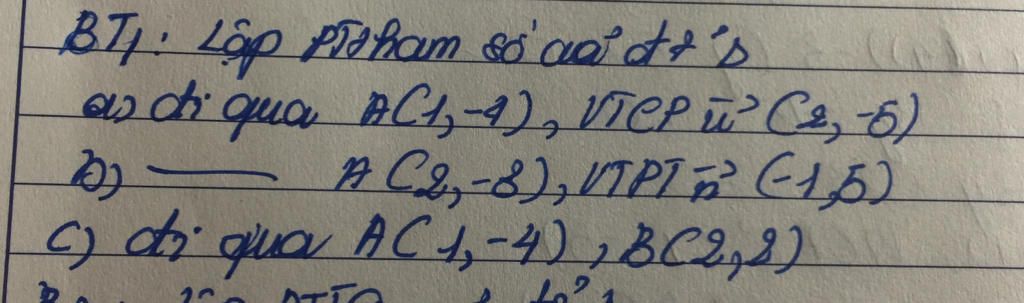 BT1: Lập PT tham số của đt s
a) đi qua A(1,-4), VTCP u⃗ (2,-5)
b) —— A(2,-3), VTPT n⃗ (-1,5)
c) đi qua A(1,-4), B(2,2)